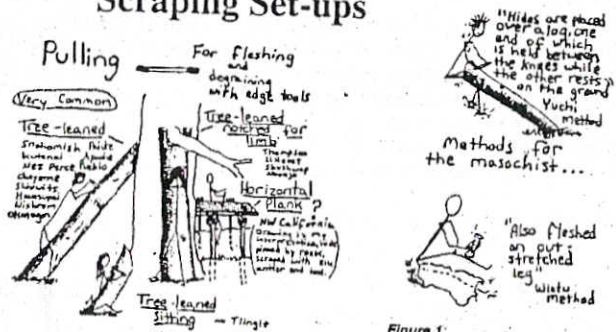 Scraping Set-ups
Pulling
For fleshing
and
degraining
with edge tools
Very Common
Tree-leaned
Snohomish
Kutenai
Nez Perce Pueblo
Cheyenne
Shivwits
Havasupai
Wishram
Okanagon
Tree-leaned
notched for
limb
Thompson
Lillooet
Shuswap
Navajo
Horizontal
Plank?
NW California
drawing is my
scraped with elk
Tree-leaned
Sitting - Tlingit
"Hides are placed
over a log, one
end of which
is held between
the knees while
the other rests
on the ground"
Yuchi
method
Methods for
the masochist...
"Also fleshed
on out-
stretched
leg"
Wintu
method
Figure 1: